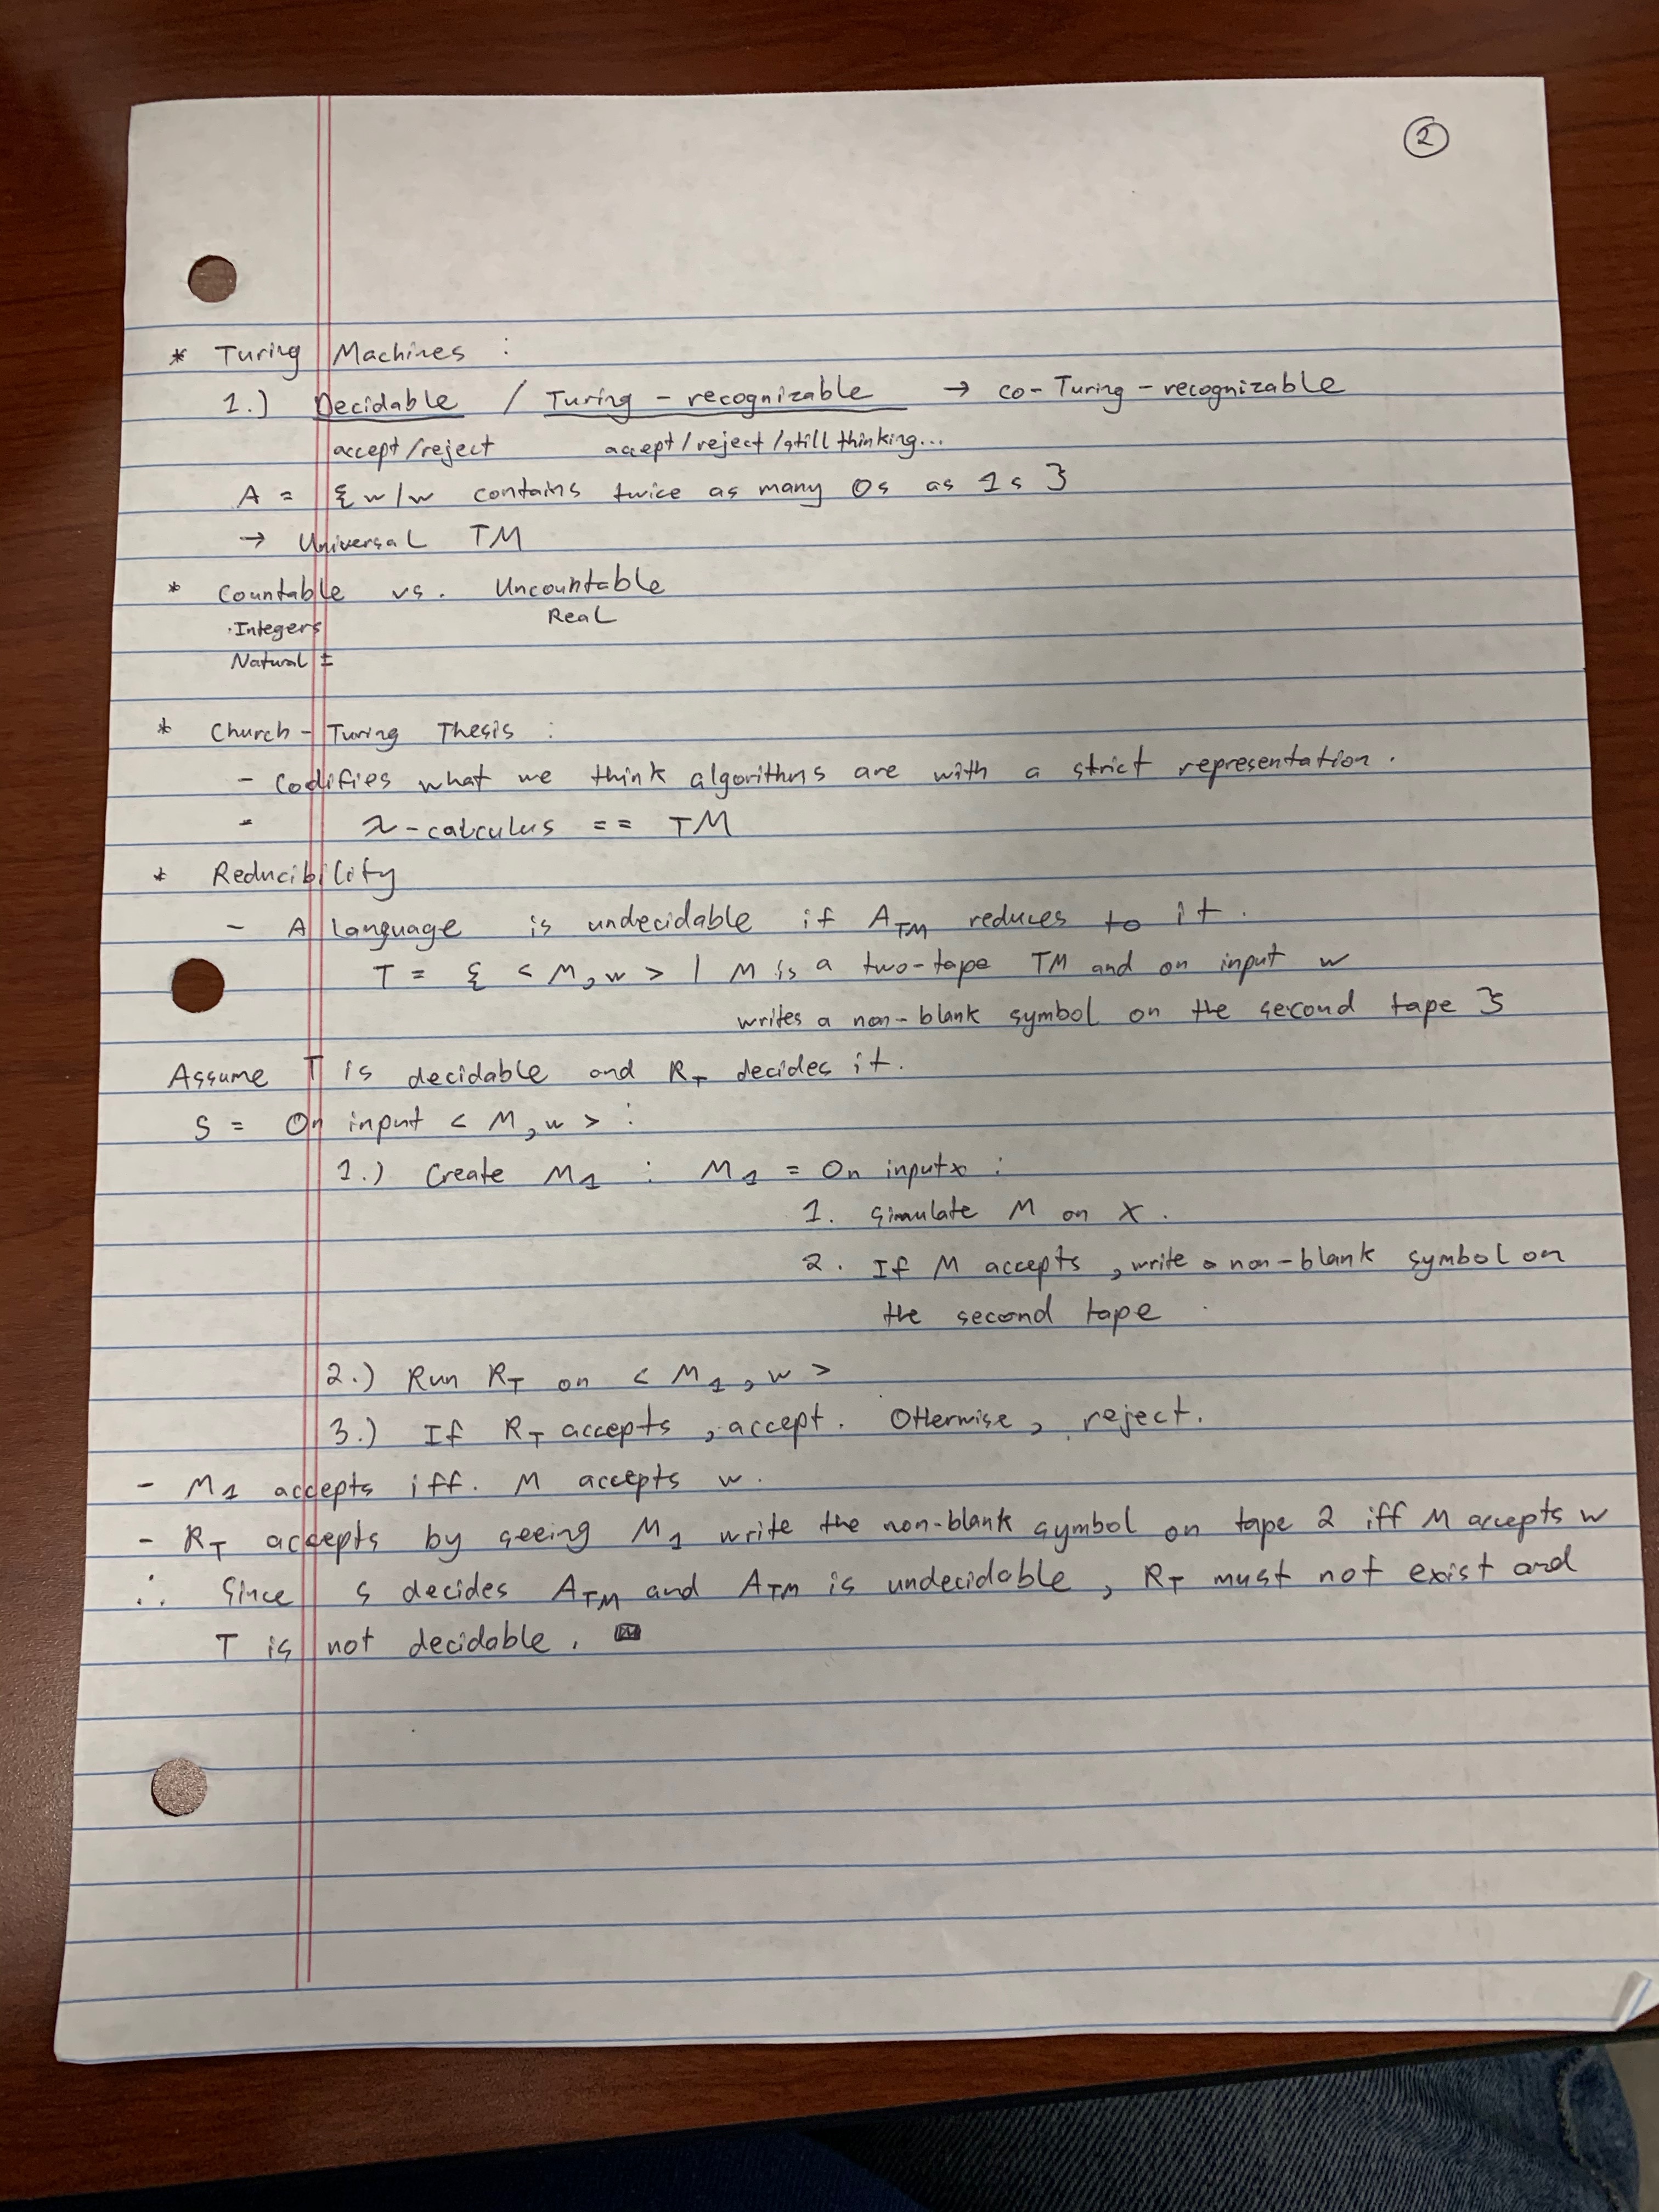 2
* Turing Machines :
1.) Decidable / Turing-recognizable → co-Turing-recognizable
accept/reject accept/reject/still thinking...
A = { w | w contains twice as many 0s as 1s }
→ Universal TM
* Countable vs. Uncountable
· Integers Real
Natural ±
* Church-Turing Thesis :
- Codifies what we think algorithms are with a strict representation.
- λ-calculus == TM
* Reducibility
- A language is undecidable if A_TM reduces to it.
T = { < M, w > | M is a two-tape TM and on input w
writes a non-blank symbol on the second tape }
Assume T is decidable and R_T decides it.
S = On input < M, w > :
1.) Create M_1 : M_1 = On input x :
1. Simulate M on x.
2. If M accepts, write a non-blank symbol on
the second tape.
2.) Run R_T on < M_1, w >
3.) If R_T accepts, accept. Otherwise, reject.
- M_1 accepts iff. M accepts w.
- R_T accepts by seeing M_1 write the non-blank symbol on tape 2 iff M accepts w
∴ Since S decides A_TM and A_TM is undecidable, R_T must not exist and
T is not decidable.